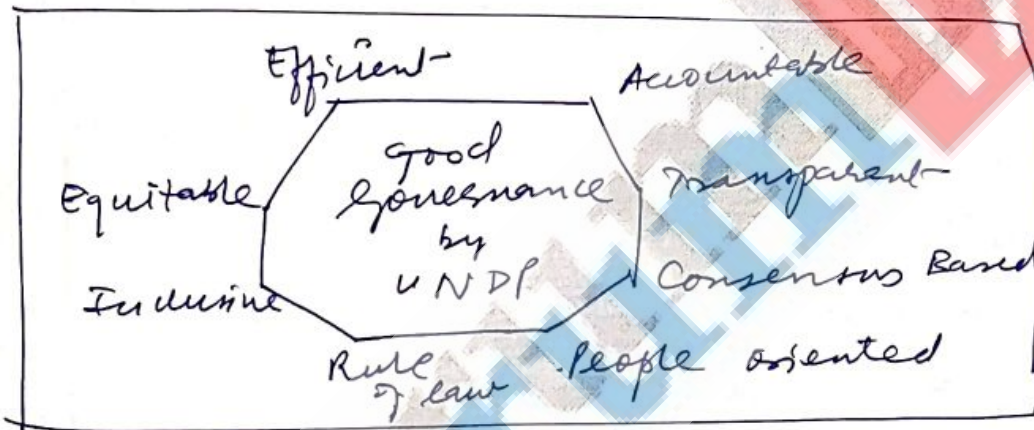 Efficient
Accountable
Good
Governance
by
UNDP
Equitable
Transparent
Inclusive
Consensus Based
Rule
of law
People oriented